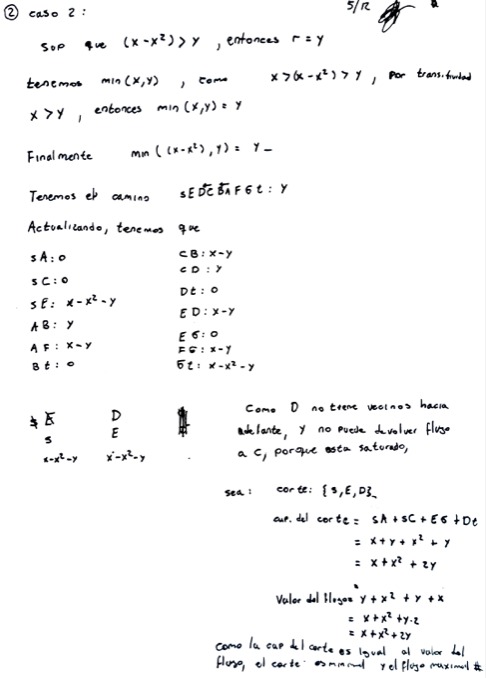 ② caso 2:
5/12
Sup que (x-x²)>y, entonces r=y
tenemos min(x,y), como x>(x-x²)>y, por transitividad
x>y, entonces min(x,y)=y
Finalmente min((x-x²),y)=y
Tenemos el camino SEDCBAFGt: y
Actualizando, tenemos que
SA: 0
SC: 0
SE: x-x²-y
AB: y
AF: x-y
Bt: 0
CB: x-y
CD: y
Dt: 0
ED: x-y
EG: 0
FG: x-y
Gt: x-x²-y
E D
S E
x-x²-y x-x²-y
Como D no tiene vecinos hacia
adelante, y no puede devolver flujo
a C, porque esta saturado,
sea: corte: {S,E,D}
cap. del corte = SA+SC+EG+Dt
= x+y+x²+y
= x+x²+2y
Valor del flujo= y+x²+y+x
= x+x²+y·2
= x+x²+2y
como la cap del corte es igual al valor del
flujo, el corte es minimal y el flujo maximal